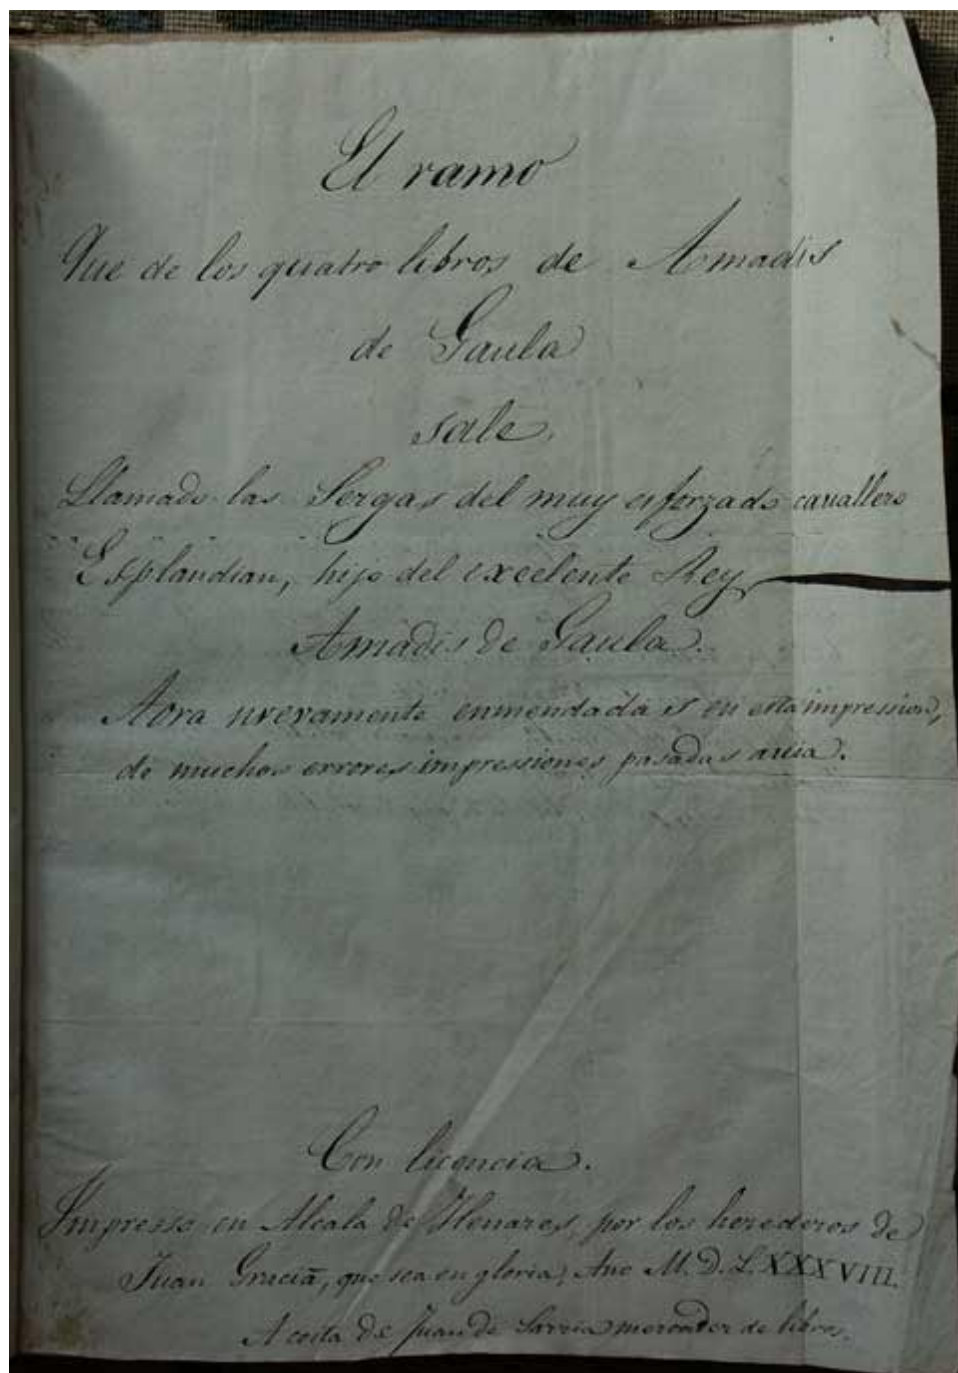 El ramo
Que de los quatro libros de Amadis
de Gaula
sale.
Llamado las Sergas del muy esforzado cauallero
Esplandian, hijo del excelente Rey
Amadis de Gaula.
Aora nuevamente enmendada en esta impression,
de muchos errores impressiones pasadas auia.
Con licencia.
Impresso en Alcala de Henares, por los herederos de
Juan Gracia, que sea en gloria, Ano M. D. L. XXXVIII.
A costa de Juan de Sarria mercader de libros.